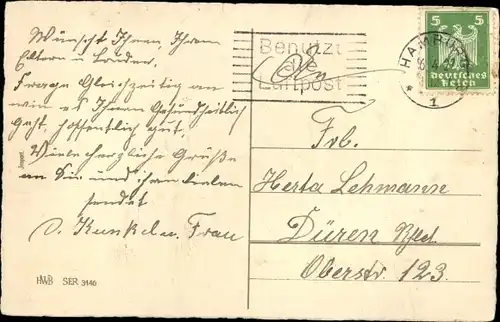 Wünscht Ihnen, Ihren
Eltern u. Bruder.
Frage Gleichzeitig an
wie es Ihnen Gesundheitlich
geht hoffentlich gut.
Viele herzliche Grüße
an Sie und ihren lieben
sendet
O. Kunkel u. Frau
Import
HWB SER 3146
Benützt
die
Luftpost
HAMBURG
1
5 5
Deutsches
Reich
Frl.
Herta Lehmann
Düren Rhld
Oberstr. 123.